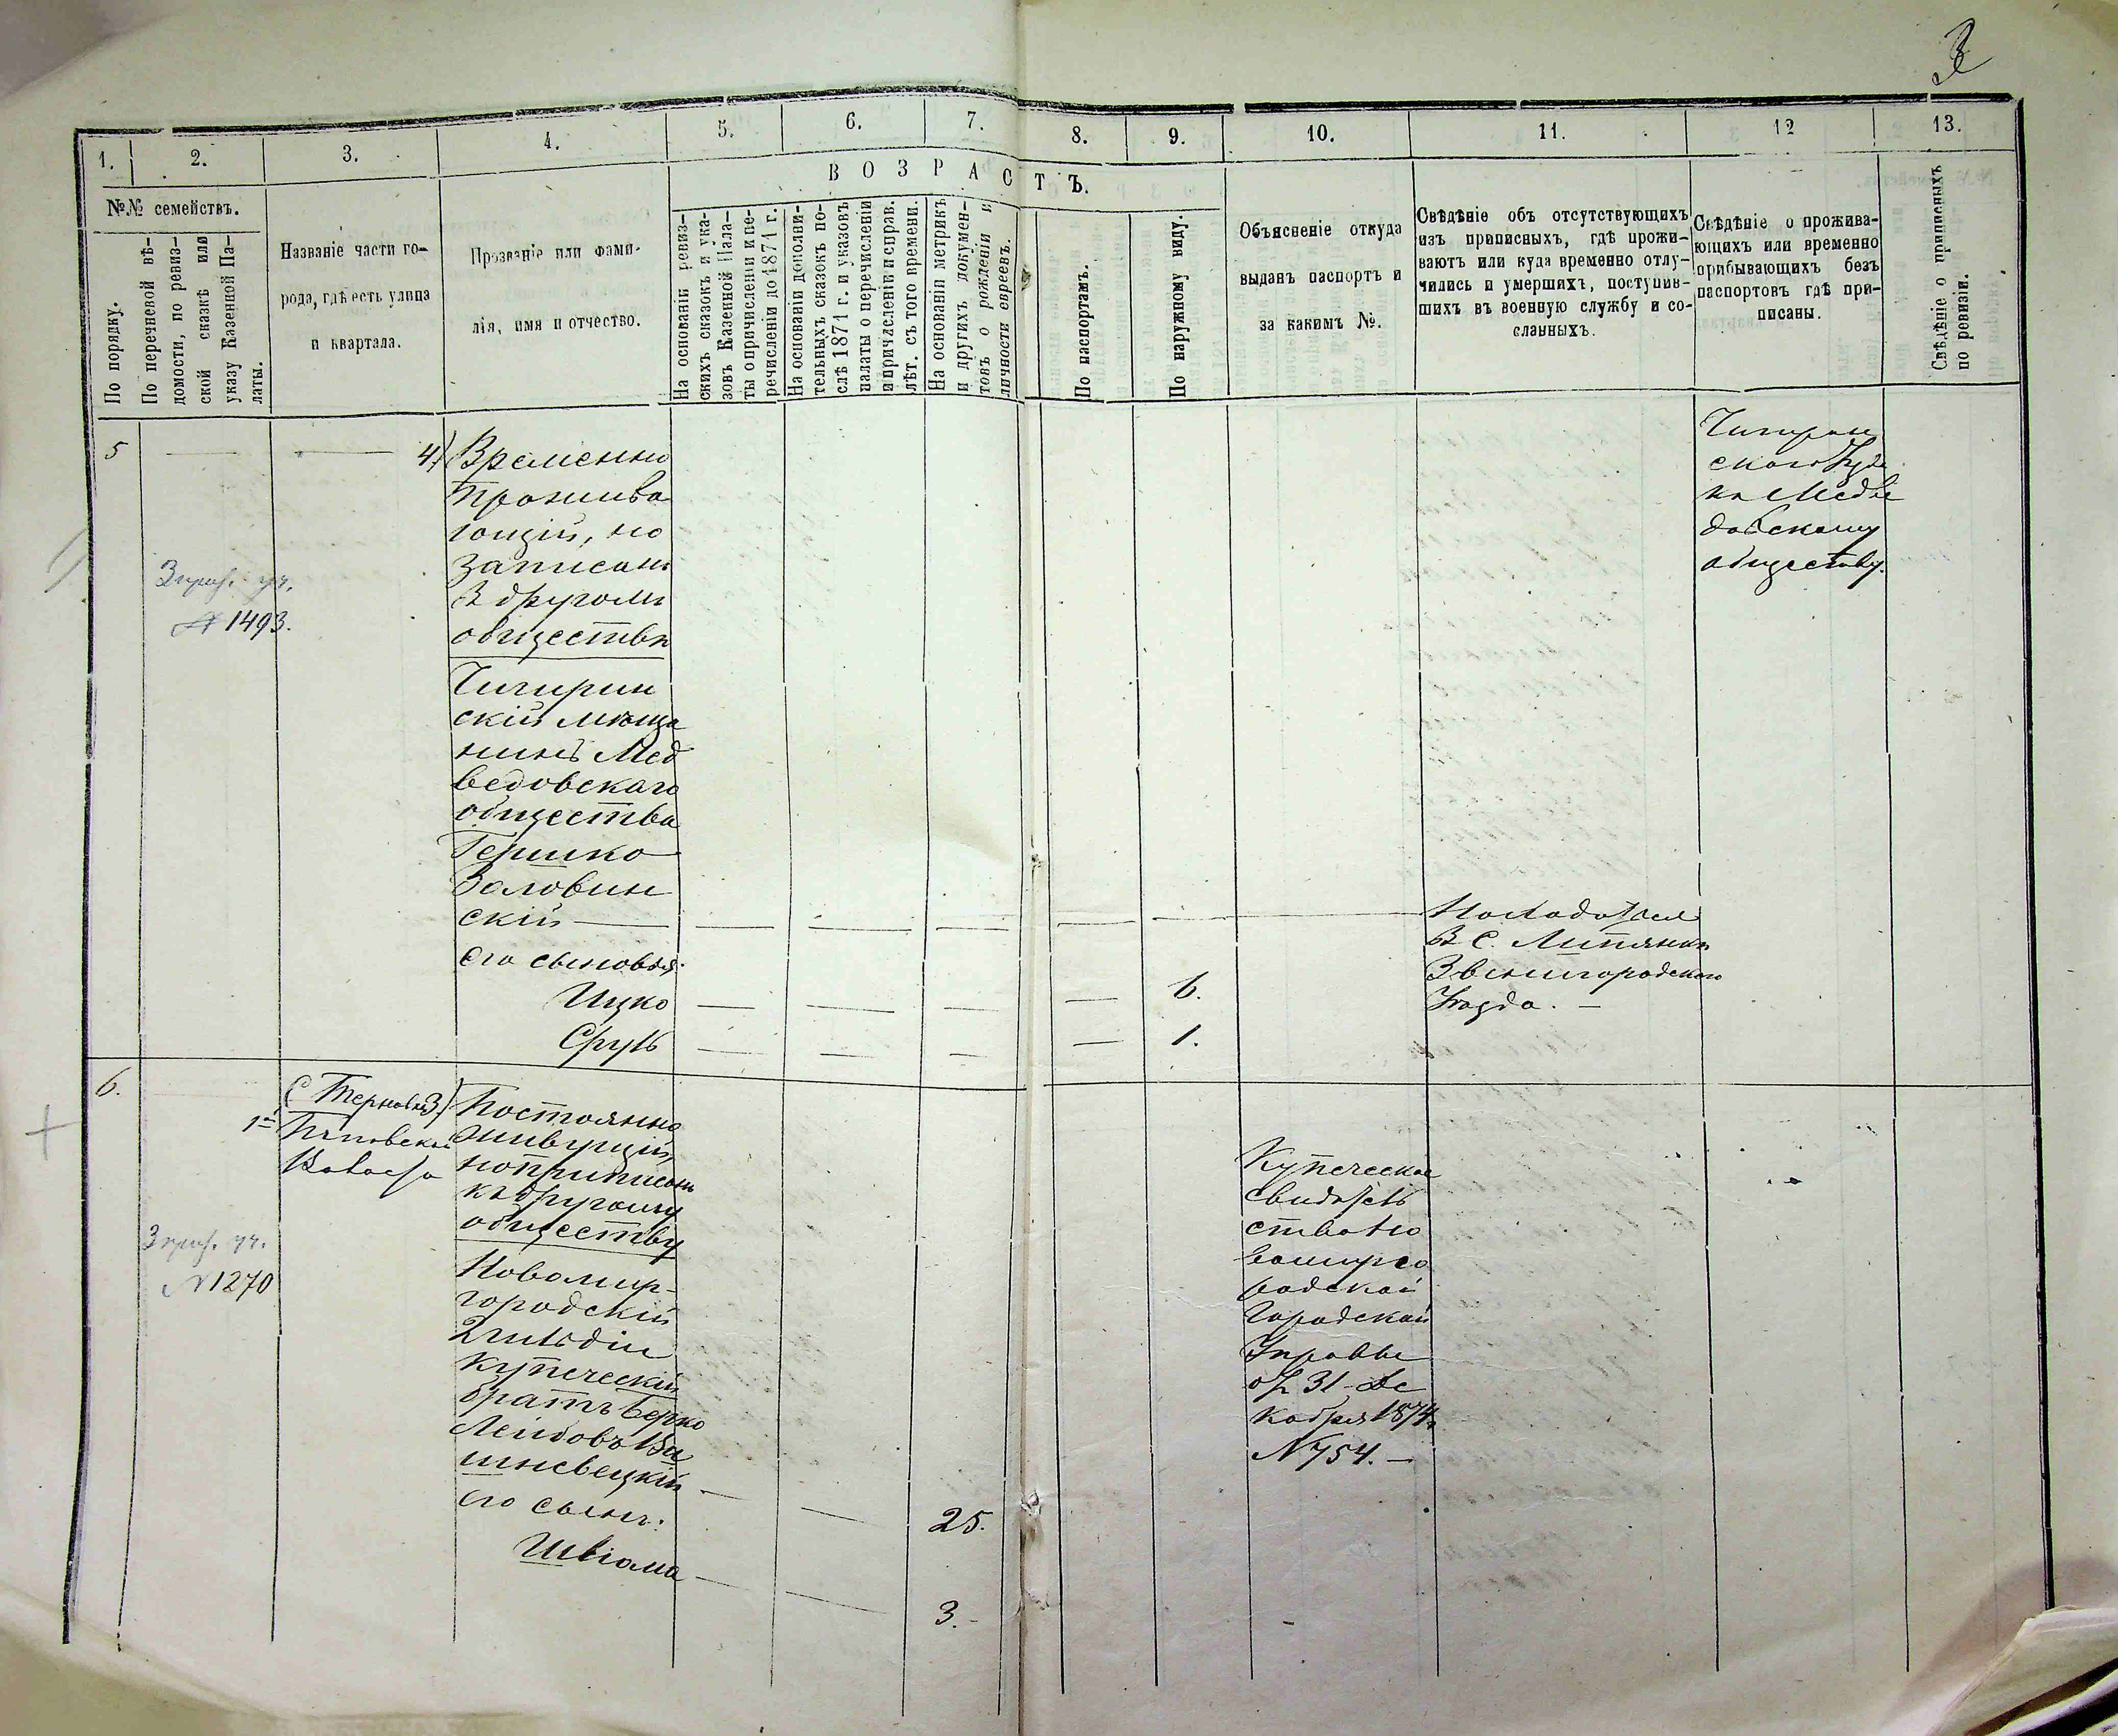 3
1.
2.
3.
4.
5.
6.
7.
8.
9.
10.
11.
12
13.
№№ семействъ.
По порядку.
По перечневой вѣ-
домости, по ревиз-
ской сказкѣ или
указу Казенной Па-
латы.
Названіе части го-
рода, гдѣ есть улица
и квартала.
Прозваніе или фами-
лія, имя и отчество.
ВОЗРАСТЪ.
На основаніи ревиз-
скихъ сказокъ и ука-
зовъ Казенной Пала-
ты о причисленіи и пе-
речисленіи до 1871 г.
На основаніи дополни-
тельныхъ сказокъ по-
слѣ 1871 г. и указовъ
палаты о перечисленіи
и причисленіи и справ.
лѣт. съ того времени.
На основаніи метрикъ
и другихъ докумен-
товъ о рожденіи и
личности евреевъ.
По паспортамъ.
По наружному виду.
Объясненіе откуда
выданъ паспортъ и
за какимъ №.
Свѣдѣніе объ отсутствующихъ
изъ приписныхъ, гдѣ прожи-
ваютъ или куда временно отлу-
чились и умершихъ, поступив-
шихъ въ военную службу и со-
сланныхъ.
Свѣдѣніе о прожива-
ющихъ или временно
прибывающихъ безъ
паспортовъ гдѣ при-
писаны.
Свѣдѣніе о приписныхъ
по ревизіи.
5
4)
Временно
прожива
ющій, но
записанъ
въ другомъ
обществѣ
Чигирин
скій мѣща
нинъ Мед
ведовскаго
общества
Гершко
Заловин
скій
Его сыновья:
Ицко
Сруль
3 приз. уч.
№ 1493.
6.
1.
Находятся
въ с. Липянкѣ
Звенигородскаго
Уѣзда. –
Чигирин
скаго Уѣзда
къ Медве
довскому
обществу.
6.
С Терновка
1й
3)
Постоянно
живущій,
но приписанъ
къ другому
обществу
Новомир-
городскій
2 гильдіи
купеческій
братъ Берко
Лейбовъ Ва
шневецкій
Его сынъ:
Швіома
3 приз. уч.
№ 1270
25.
3.
Купеческое
свидѣтель
ство Но
вомирго
родской
Городской
Управы
отъ 31 Де
кабря 1874 г.
№ 754. –